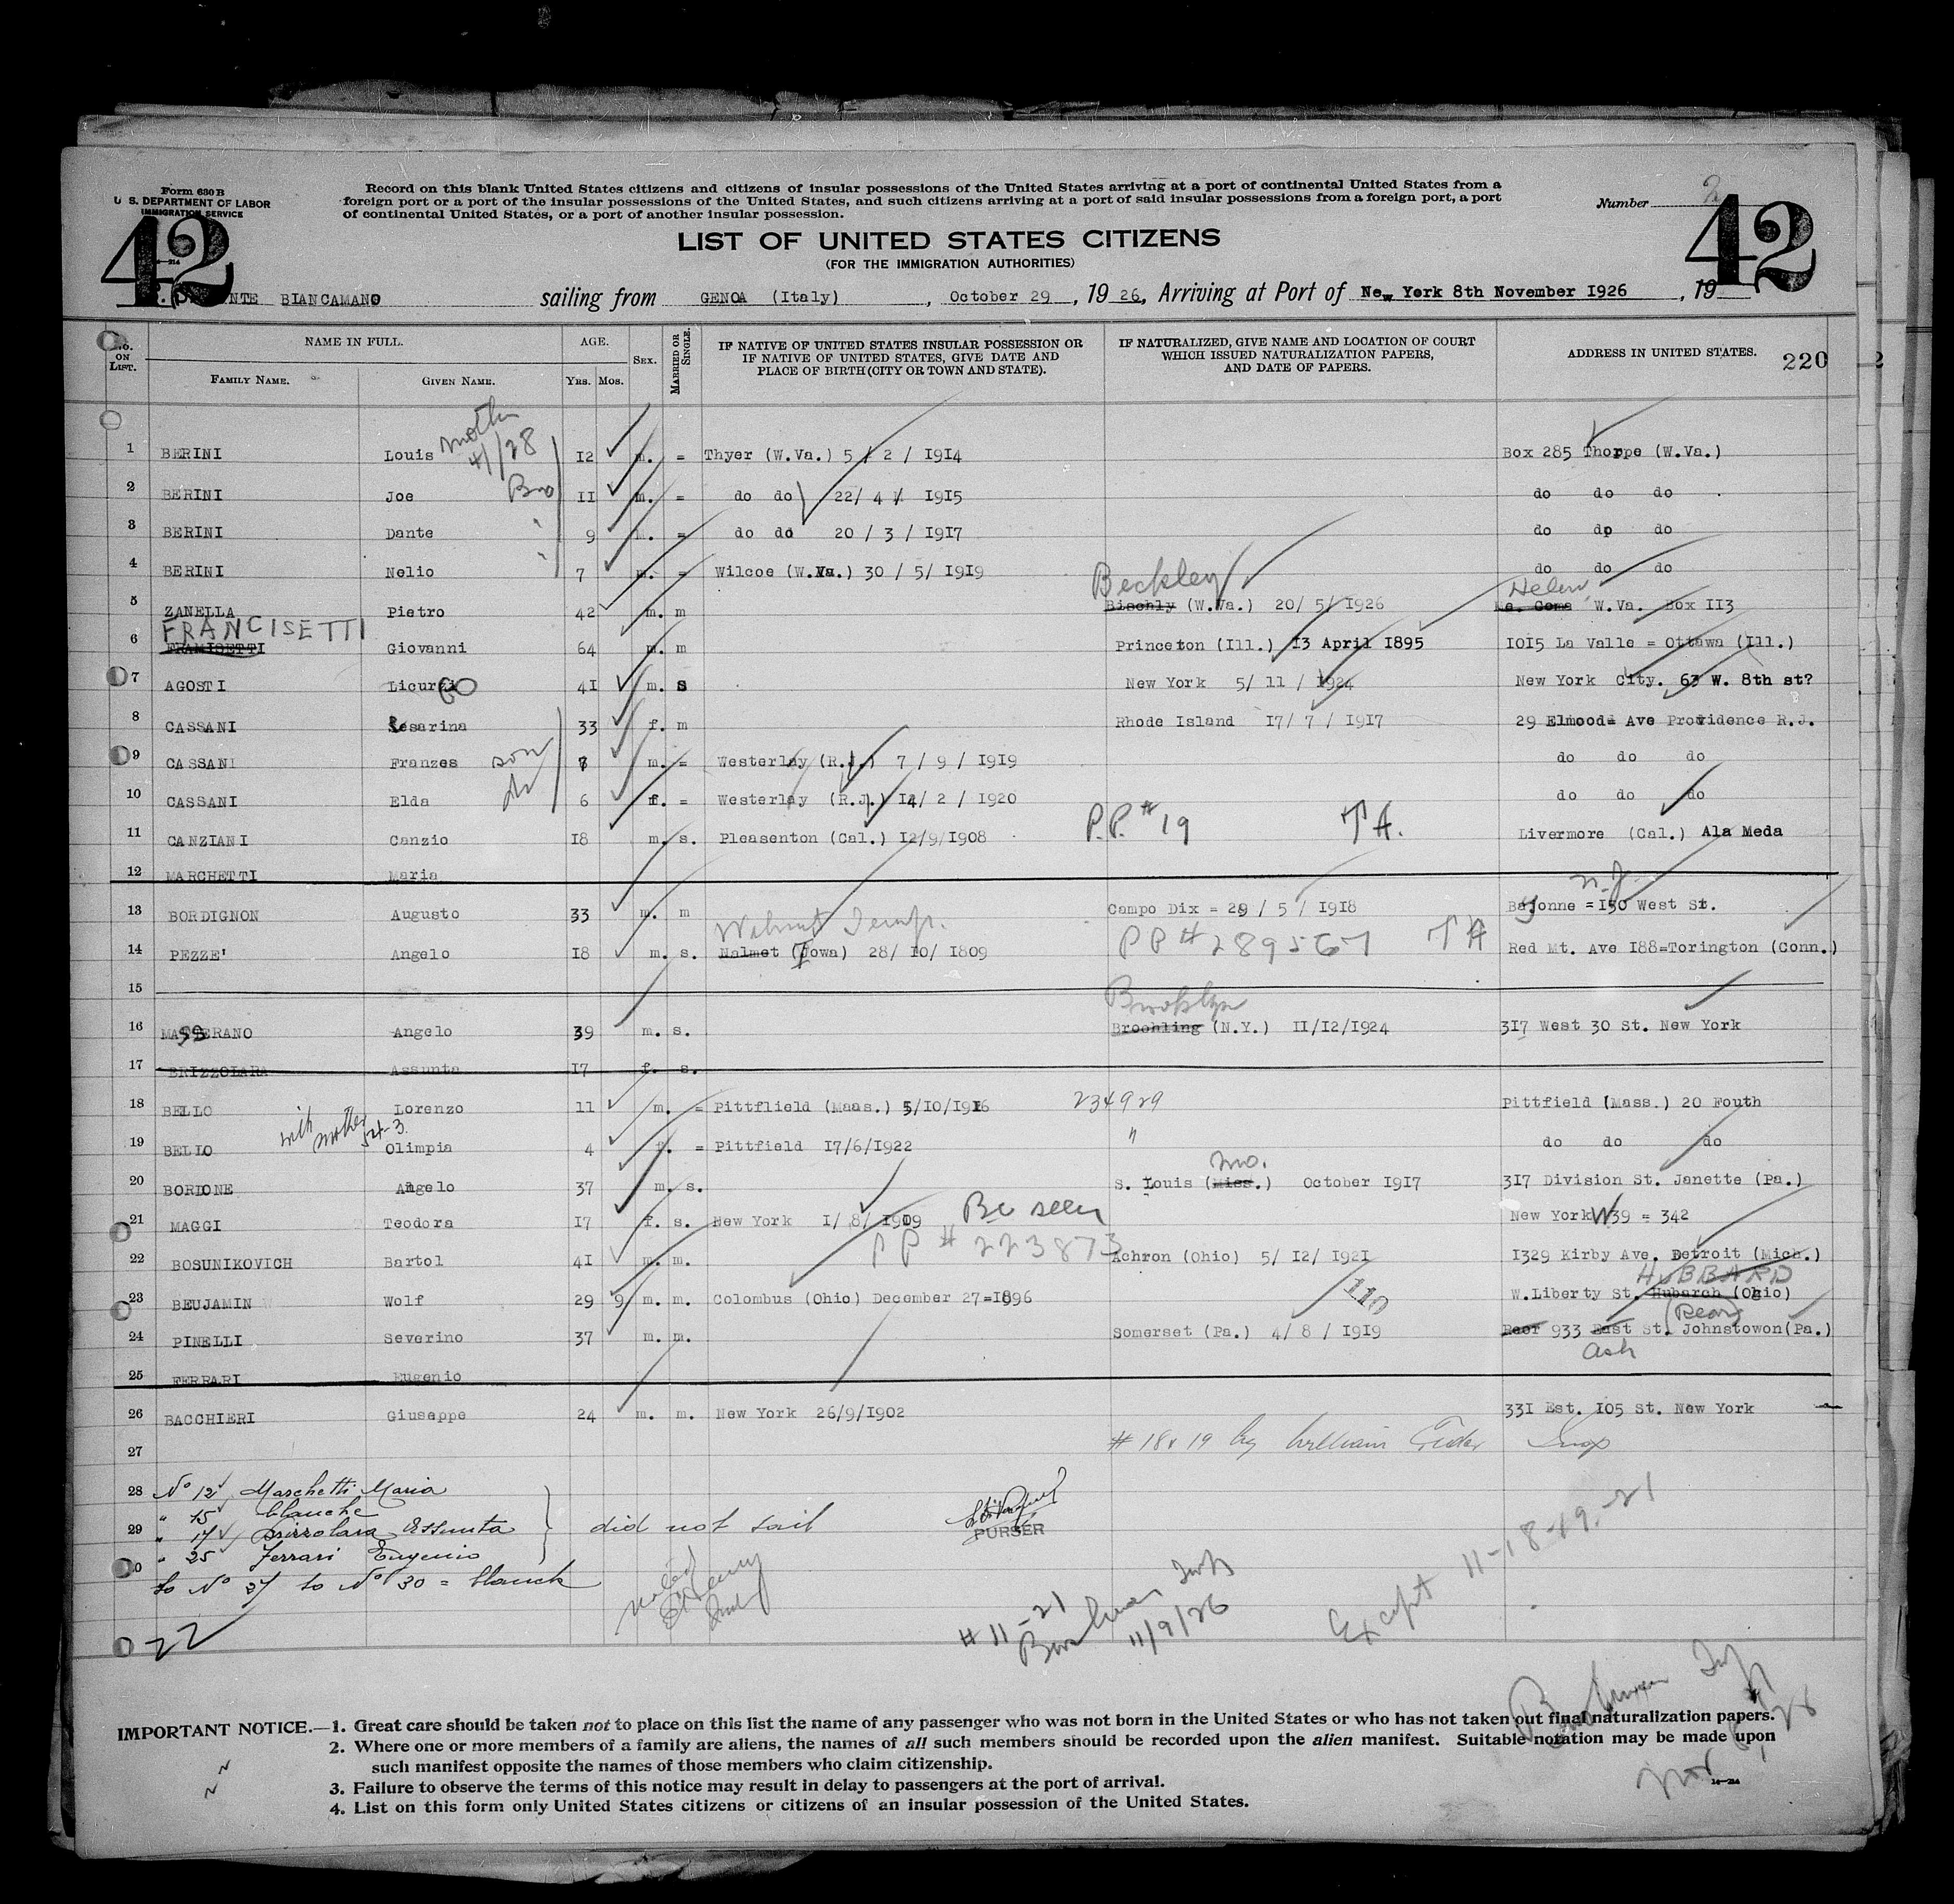 Form 630 B
U. S. DEPARTMENT OF LABOR
IMMIGRATION SERVICE
42
Record on this blank United States citizens and citizens of insular possessions of the United States arriving at a port of continental United States from a
foreign port or a port of the insular possessions of the United States, and such citizens arriving at a port of said insular possessions from a foreign port, a port
of continental United States, or a port of another insular possession.
Number 2
42
LIST OF UNITED STATES CITIZENS
(FOR THE IMMIGRATION AUTHORITIES)
BIANCAMANO sailing from GENOA (Italy), October 29, 1926, Arriving at Port of New York 8th November 1926, 19
No. ON LIST. NAME IN FULL. AGE. SEX. MARRIED OR SINGLE. IF NATIVE OF UNITED STATES INSULAR POSSESSION OR IF NATIVE OF UNITED STATES, GIVE DATE AND PLACE OF BIRTH (CITY OR TOWN AND STATE). IF NATURALIZED, GIVE NAME AND LOCATION OF COURT WHICH ISSUED NATURALIZATION PAPERS, AND DATE OF PAPERS. ADDRESS IN UNITED STATES. 220
FAMILY NAME. GIVEN NAME. YRS. MOS.
1 BERINI Louis mother 41/28 12 m. = Thyer (W.Va.) 5 / 2 / 1914 Box 285 Thorpe (W.Va.)
2 BERINI Joe Bro 11 m. = do do 22/ 4 / 1915 do do do
3 BERINI Dante 9 m. = do do 20 / 3 / 1917 do do do
4 BERINI Nelio 7 m. = Wilcoe (W.Va.) 30 / 5/ 1919 do do do
Beckley Helen
5 ZANELLA Pietro 42 m. m (W.Va.) 20/ 5/ 1926 W.Va. Box 113
FRANCISETTI
6 FRAMISETTI Giovanni 64 m. m Princeton (Ill.) 13 April 1895 1015 La Valle = Ottawa (Ill.)
7 AGOSTI Licurgo 41 m. s New York 5/ 11 / 1924 New York City. 63 W. 8th st?
8 CASSANI Cesarina 33 f. m Rhode Island 17/ 7 / 1917 29 Elmood= Ave Providence R.J.
9 CASSANI Franzes son 7 m. = Westerlay (R.J.) 7 / 9 / 1919 do do do
10 CASSANI Elda 6 f. = Westerlay (R.J.) 14/ 2 / 1920 do do do
11 CANZIANI Canzio 18 m. s. Pleasenton (Cal.) 12/9/1908 P.P.# 19 TA. Livermore (Cal.) Ala Meda
12 MARCHETTI Maria
n.J.
13 BORDIGNON Augusto 33 m. m Campo Dix = 29 / 5 / 1918 Bayonne = 150 West St.
Walnut Temp.
14 PEZZE' Angelo 18 m. s. Malmet (Iowa) 28/ 10/ 1809 PP # 289567 TA Red Mt. Ave 188=Torington (Conn.)
15
Brooklyn
16 MASSERANO Angelo 39 m. s. Broohling (N.Y.) 11/12/1924 317 West 30 St. New York
17 BRIZZOLARA Assunta 17 f. s.
18 BELLO Lorenzo 11 m. = Pittflield (Maas.) 5/10/1916 234929 Pittfield (Mass.) 20 Fouth
with mother
19 BELLO Olimpia 4 f. = Pittfield 17/6/1922 " do do do
mo.
20 BORIONE Angelo 37 m. s. S. Louis (Miss.) October 1917 317 Division St. Janette (Pa.)
21 MAGGI Teodora 17 f. s. New York 1/ 8/ 1909 Be seen New York W 39 = 342
PP # 223873
22 BOSUNIKOVICH Bartol 41 m. m. Achron (Ohio) 5/ 12/ 1921 1329 Kirby Ave. Detroit (Mich.)
HUBBARD
23 BEUJAMIN Wolf 29 9 m. m. Colombus (Ohio) December 27=1896 110 W.Liberty St. Hubarch (Ohio)
(Rear)
24 PINELLI Severino 37 m. m. Somerset (Pa.) 4/ 8 / 1919 Reor 933 East St. Johnstowon(Pa.)
Ash
25 FERRARI Eugenio
26 BACCHIERI Giuseppe 24 m. m. New York 26/9/1902 331 Est. 105 St. New York
27 # 18 & 19 by William Insp
28 No 12 Marchetti Maria
" 15 blanche
29 " 17 Brizzolara Assunta did not sail PURSER
" 25 Ferrari Eugenio
30 to No 27 to No 30 = blanck
22
# 11-21
11/9/26
Except 11-18-19-21
IMPORTANT NOTICE.—1. Great care should be taken not to place on this list the name of any passenger who was not born in the United States or who has not taken out final naturalization papers.
2. Where one or more members of a family are aliens, the names of all such members should be recorded upon the alien manifest. Suitable notation may be made upon
such manifest opposite the names of those members who claim citizenship.
3. Failure to observe the terms of this notice may result in delay to passengers at the port of arrival.
4. List on this form only United States citizens or citizens of an insular possession of the United States.